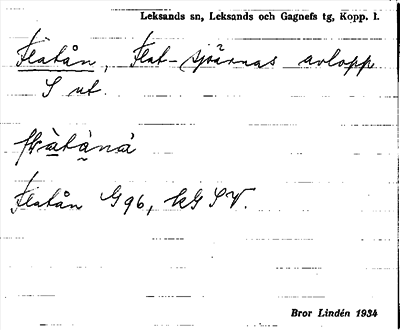 Leksands sn, Leksands och Gagnefs tg, Kopp. l.
Flatån, Flat-tjärnas avlopp
S ut.
Flatån G96, kG SV.
Bror Lindén 1934